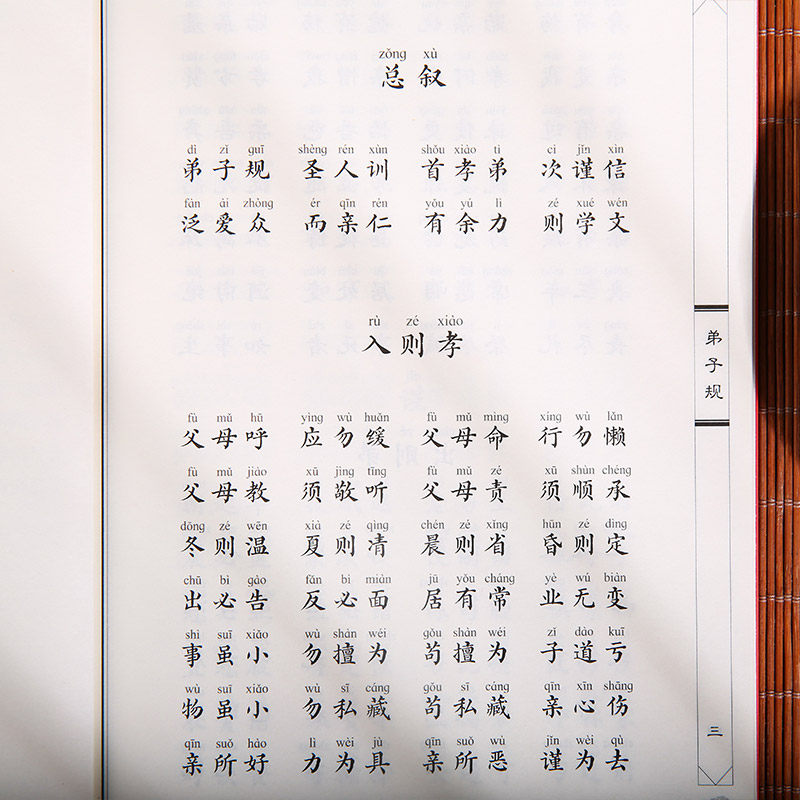 zǒng xù
总叙
dì zǐ guī shèng rén xùn shǒu xiào tì cì jǐn xìn
弟子规 圣人训 首孝弟 次谨信
fàn ài zhòng ér qīn rén yǒu yú lì zé xué wén
泛爱众 而亲仁 有余力 则学文
rù zé xiào
入则孝
fù mǔ hū yìng wù huǎn fù mǔ mìng xíng wù lǎn
父母呼 应勿缓 父母命 行勿懒
fù mǔ jiào xū jìng tīng fù mǔ zé xū shùn chéng
父母教 须敬听 父母责 须顺承
dōng zé wēn xià zé qìng chén zé xǐng hūn zé dìng
冬则温 夏则凊 晨则省 昏则定
chū bì gào fǎn bì miàn jū yǒu cháng yè wú biàn
出必告 反必面 居有常 业无变
shì suī xiǎo wù shàn wéi gǒu shàn wéi zǐ dào kuī
事虽小 勿擅为 苟擅为 子道亏
wù suī xiǎo wù sī cáng gǒu sī cáng qīn xīn shāng
物虽小 勿私藏 苟私藏 亲心伤
qīn suǒ hào lì wèi jù qīn suǒ wù jǐn wèi qù
亲所好 力为具 亲所恶 谨为去
弟子规
三